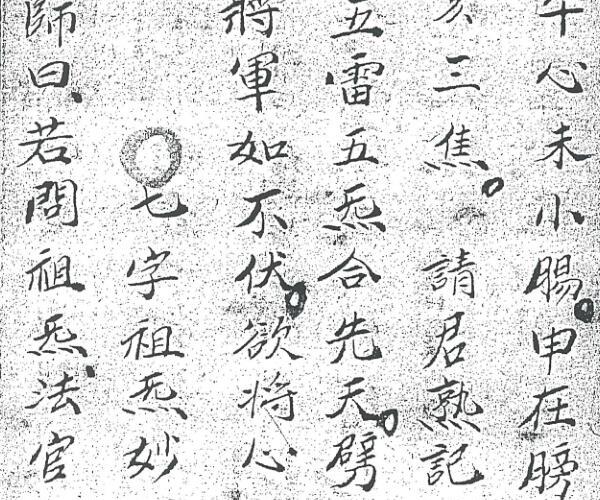 午心未小腸申在膀
亥三焦 請君熟記
五雷五炁合先天劈
將軍如不伏欲将心
○七字祖炁妙
師曰若問祖炁法官